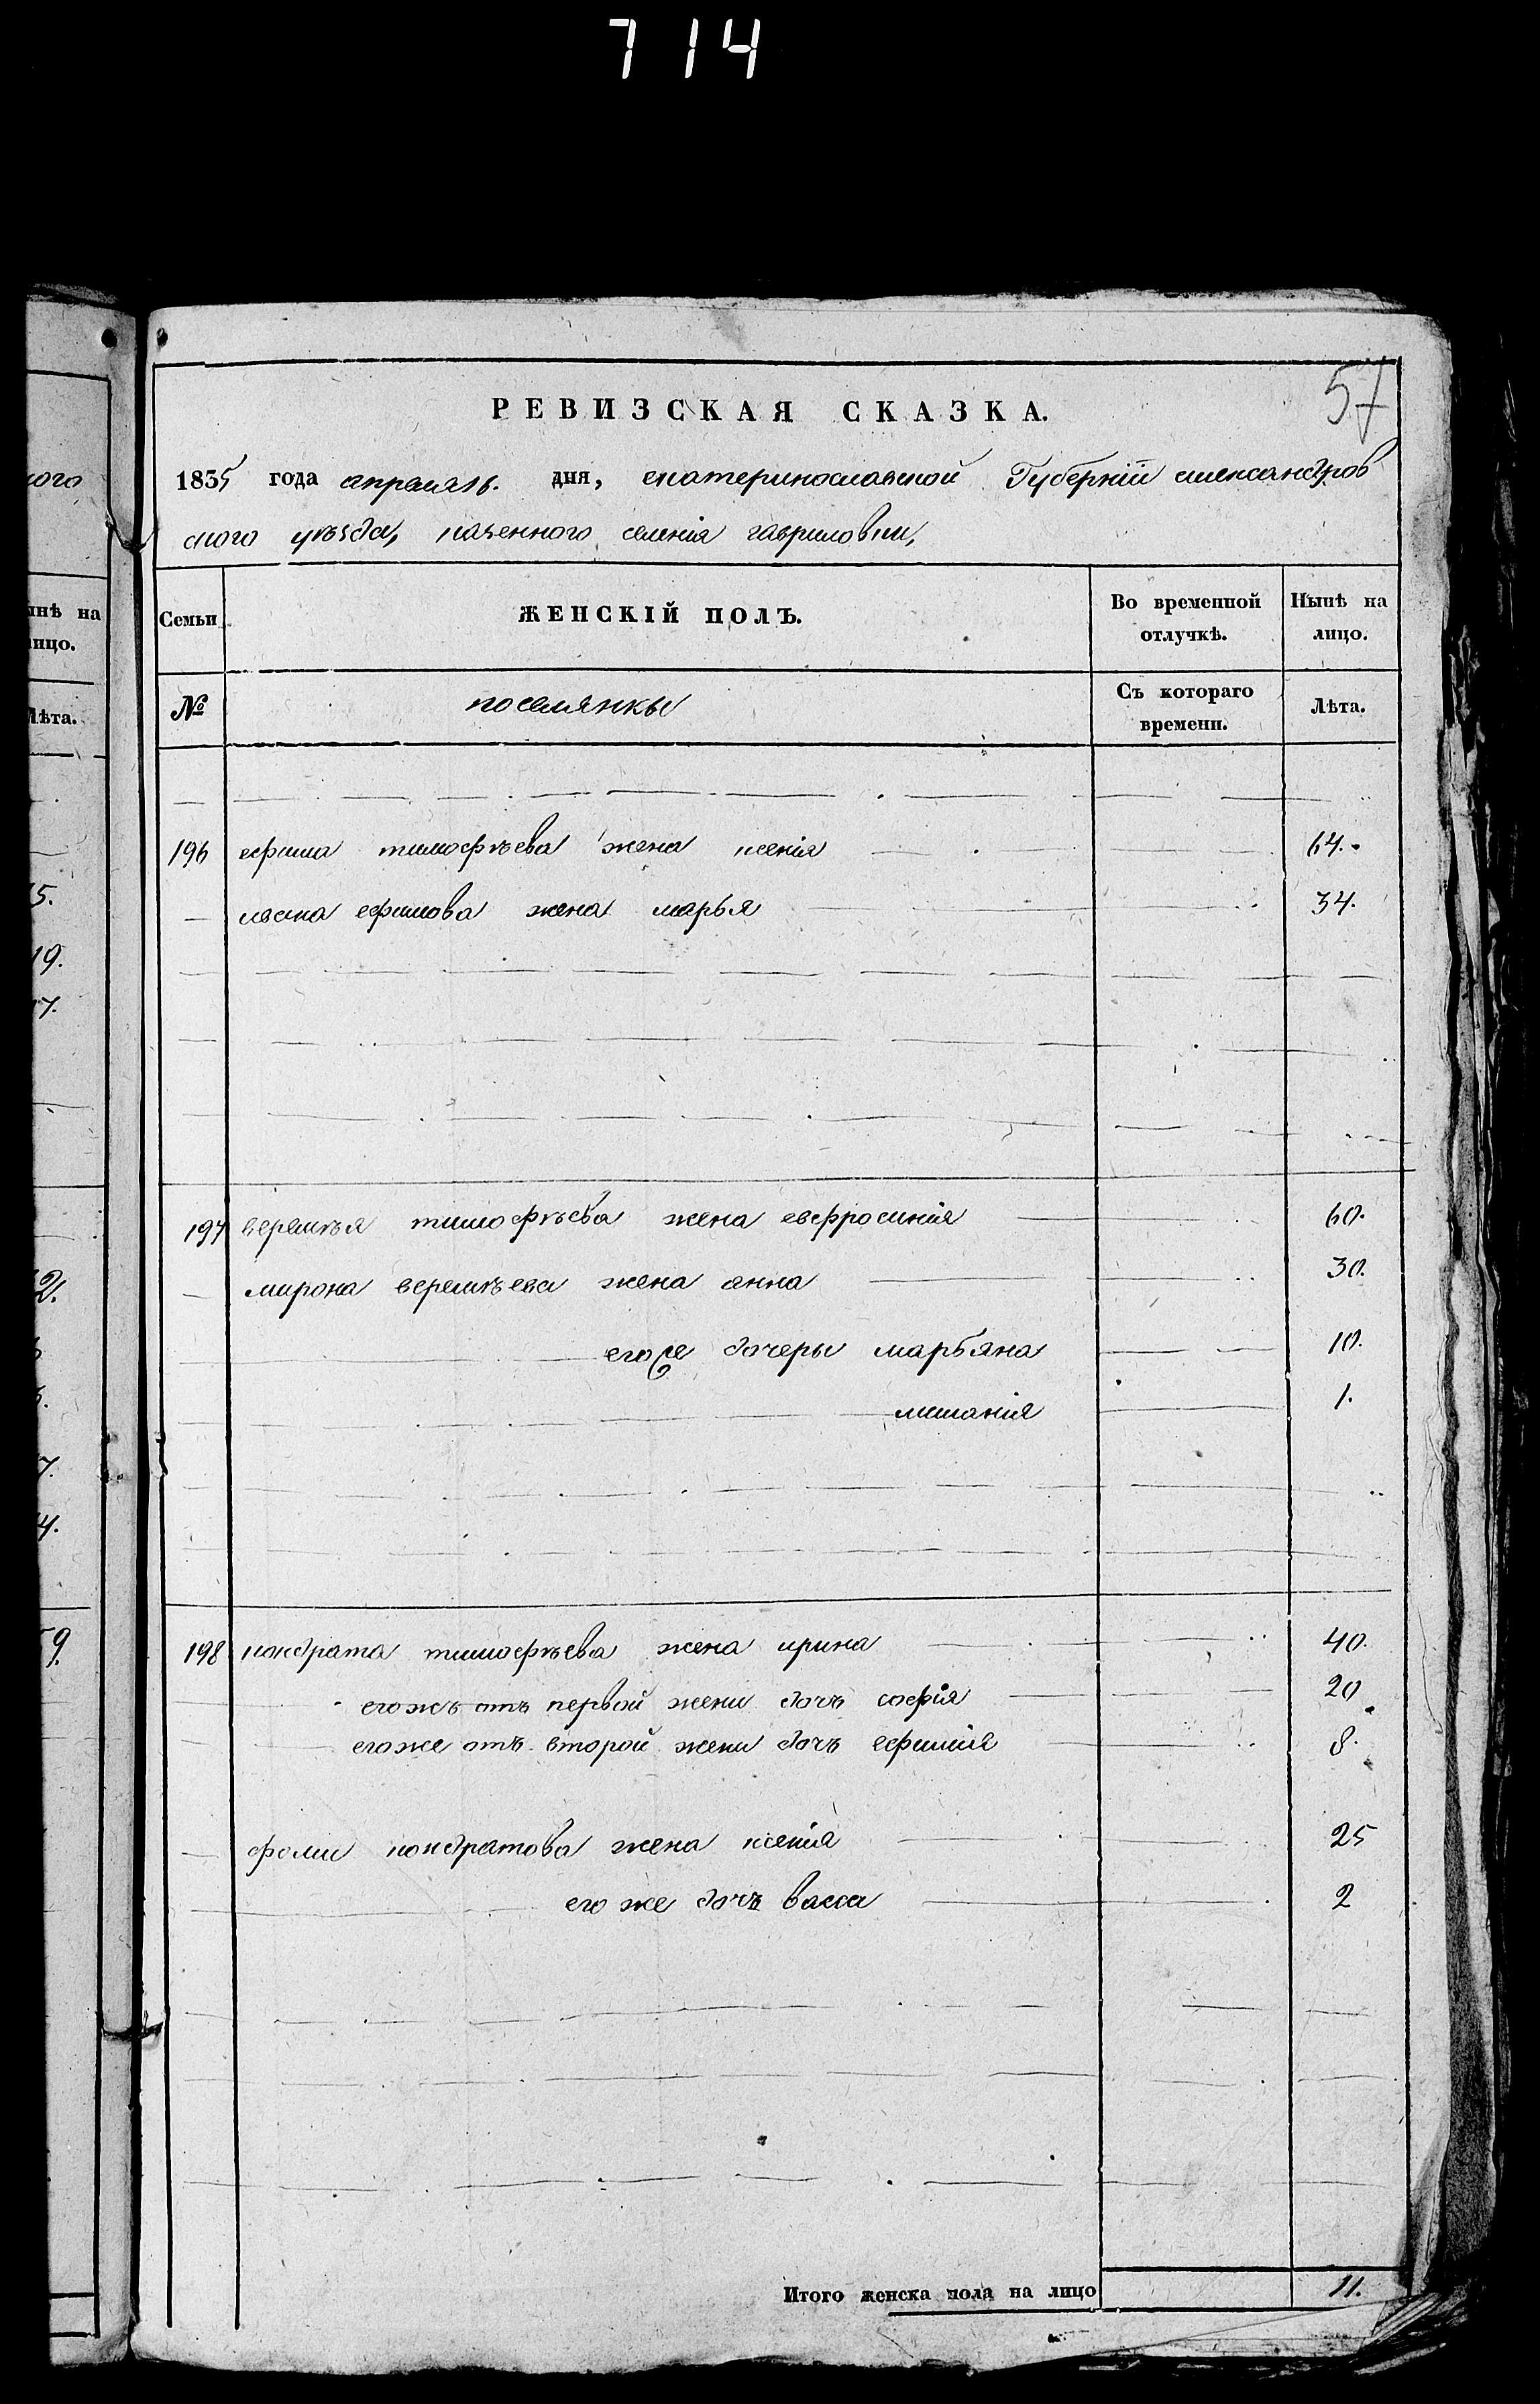 714
57
РЕВИЗСКАЯ СКАЗКА.
1835 года апреля дня, екатеринославской Губернiи александров
ского уѣзда, казенного селенія гавриловки,
Семьи ЖЕНСКІЙ ПОЛЪ. Во временной отлучкѣ. Нынѣ на лицо.
№ поселянкы Съ котораго времени. Лѣта.
196 ефима тимофѣева жена ксенія 64.
ефимова жена марья 34.
197 веремѣя тимофѣева жена евфросинія 60.
мирона веремѣева жена анна 30.
егоже дочеры марьяна 10.
1.
198 кондрата тимофѣева жена ирина 40.
егожъ отъ первой жени дочъ софія 20
егоже отъ второй жени дочъ ефимія 8.
фоми кондратова жена ксенія 25
его же дочъ васса 2
Итого женска пола на лицо 11.
ного
нынѣ на
лицо.
Лѣта.
5.
19.
17.
2.
7.
4.
59.